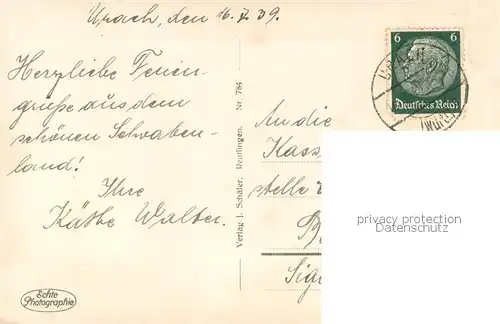 Urach, den 16. 7. 39.
Herzliche Ferien-
grüße aus dem
schönen Schwaben-
land!
Ihre
Käthe Walter.
Echte
Photographie
Verlag J. Schäfer, Reutlingen. Nr 784
6 6
Deutsches Reich
(Württ
An die
Kass
stelle
Sig
privacy protection
Datenschutz